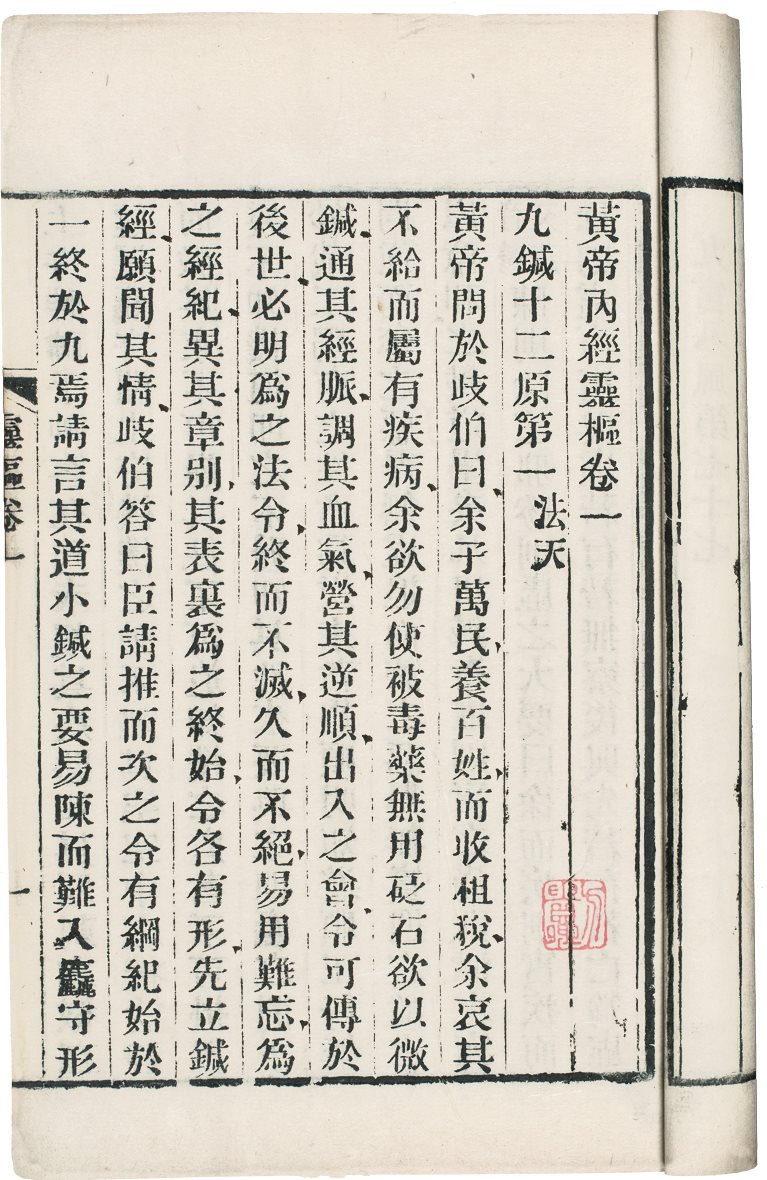 黃帝內經靈樞卷一
九鍼十二原第一 法天
黃帝問於歧伯曰余子萬民養百姓而收租稅余哀其
不給而屬有疾病余欲勿使被毒藥無用砭石欲以微
鍼通其經脈調其血氣營其逆順出入之會令可傳於
後世必明為之法令終而不滅久而不絕易用難忘為
之經紀異其章別其表裏為之終始令各有形先立鍼
經願聞其情歧伯答曰臣請推而次之令有綱紀始於
一終於九焉請言其道小鍼之要易陳而難入麤守形
靈樞卷一
一